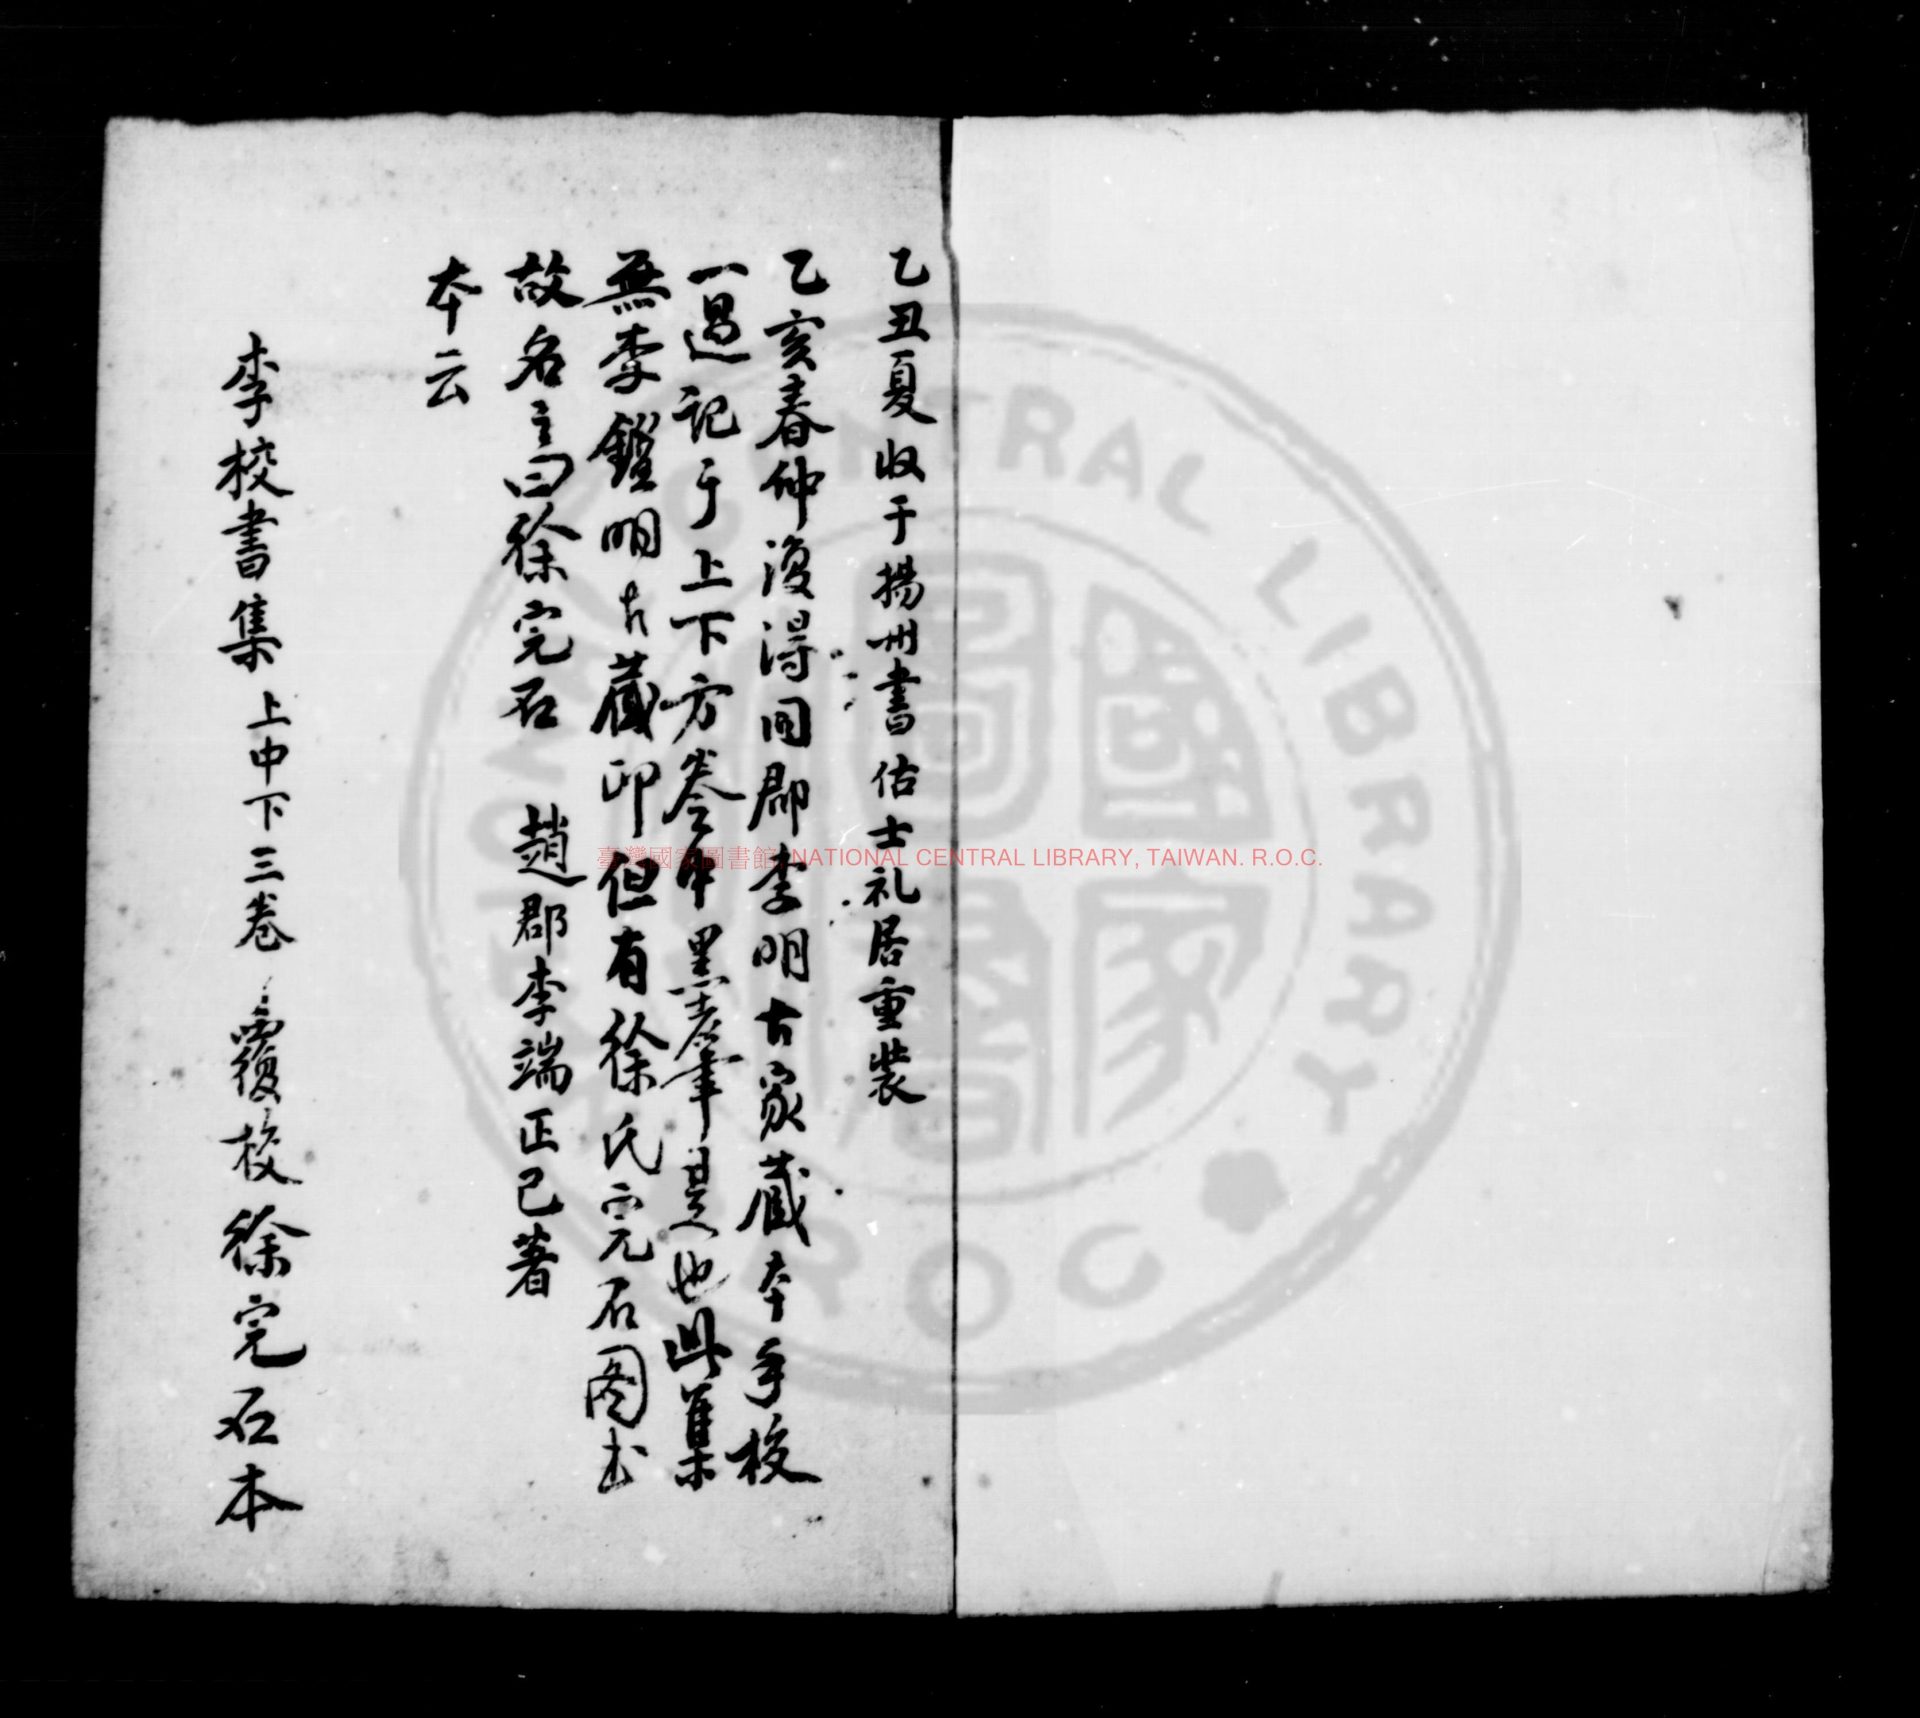 乙丑夏收于揚州書估士礼居重裝
乙亥春仲復得同郡李明古家藏本手校
一過記于上下方卷中黑筆是也此集
無李鑑明古藏印但有徐氏完石图书
故名之曰徐完石 趙郡李端正己著
本云
李校書集上中下三卷 覆校徐完石本
臺灣國家圖書館 NATIONAL CENTRAL LIBRARY, TAIWAN. R.O.C.
NATIONAL CENTRAL LIBRARY
R.O.C
國家圖書